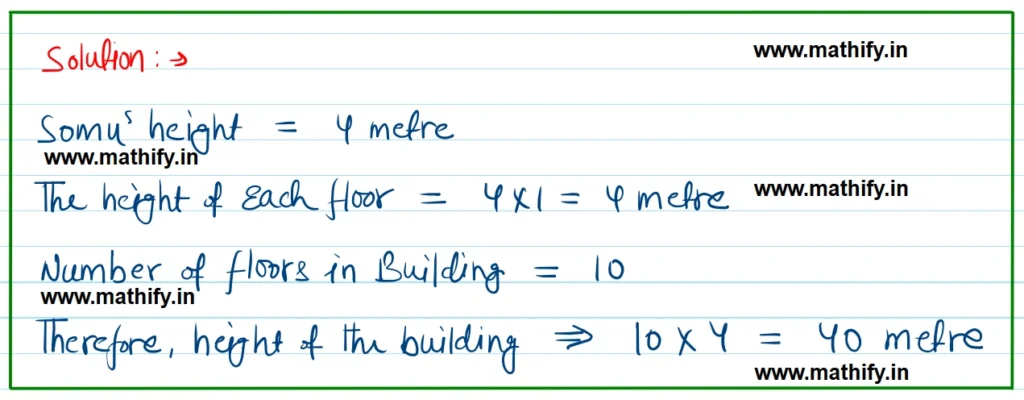 Solution :→
www.mathify.in
Somu's height = 4 metre
www.mathify.in
The height of Each floor = 4 X 1 = 4 metre
www.mathify.in
Number of floors in Building = 10
www.mathify.in
Therefore, height of the building ⇒ 10 X 4 = 40 metre
www.mathify.in